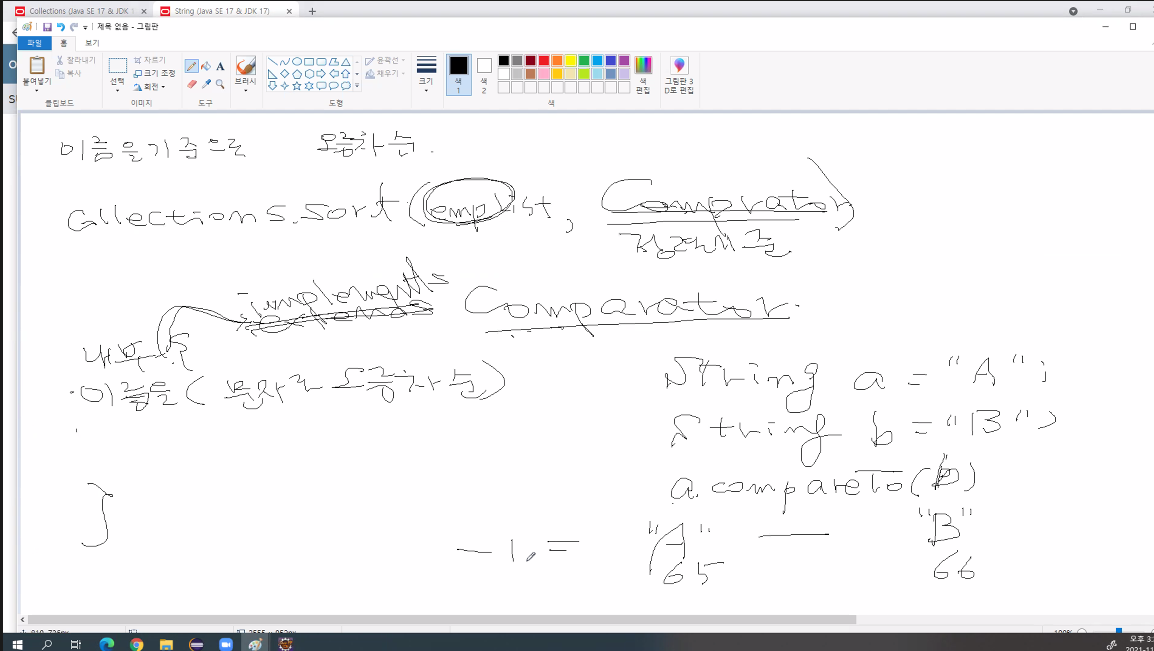 Collections (Java SE 17 & JDK 1
String (Java SE 17 & JDK 17)
제목 없음 - 그림판
파일 홈 보기
붙여넣기
잘라내기
복사
클립보드
선택
자르기
크기 조정
회전
이미지
A
도구
브러시
윤곽선
채우기
도형
크기
색 1
색 2
색 편집
색
그림판 3D로 편집
이름을기준으로 오름차순.
Collections.sort(emplist, Comprator)
정렬기준
implements Comparator.
내부
이름을(문자로 오름차순)
String a = "A";
String b = "B";
a.compareTo(b)
"A" — "B"
-1. = 65 66
100%
오후 3:
2021-11